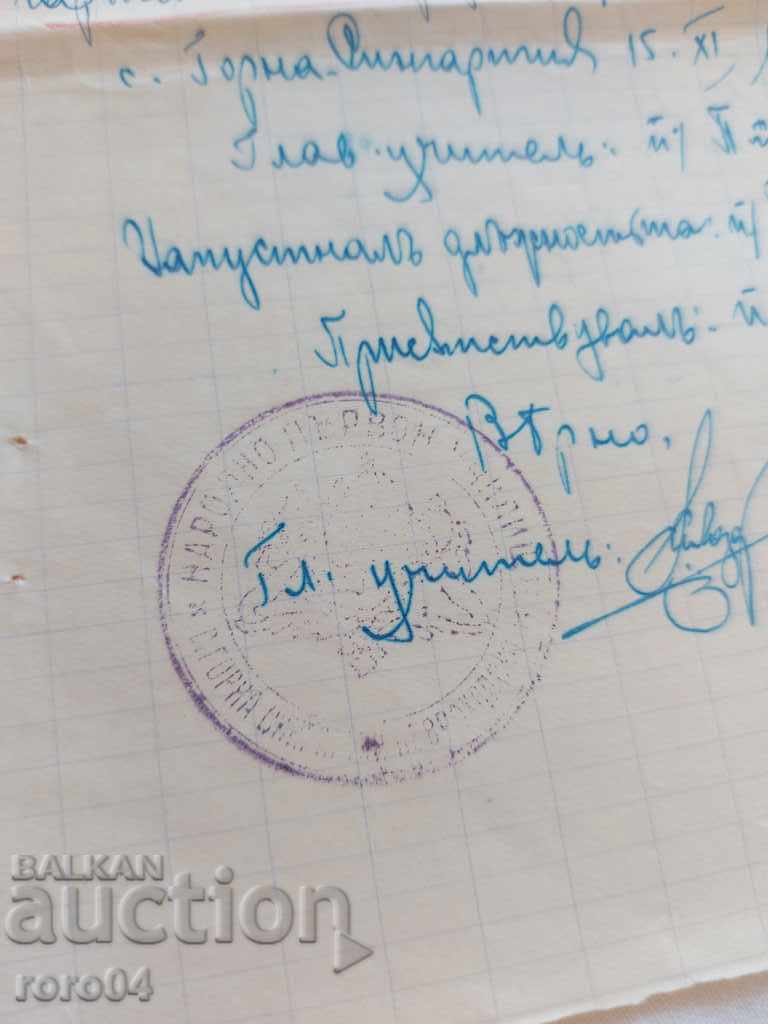 с. Горна-Сингартия 15. XI
Глав. учитель: п/ П
Напустналъ длъжностьта: п/
Присѫтствувалъ: п
Вѣрно.
Гл. учитель:
НАРОДНО ПЪРВОН. УЧИЛИ
С. ГОРНА СИ НЕВРОКОПСК
BALKAN
auction
roro04